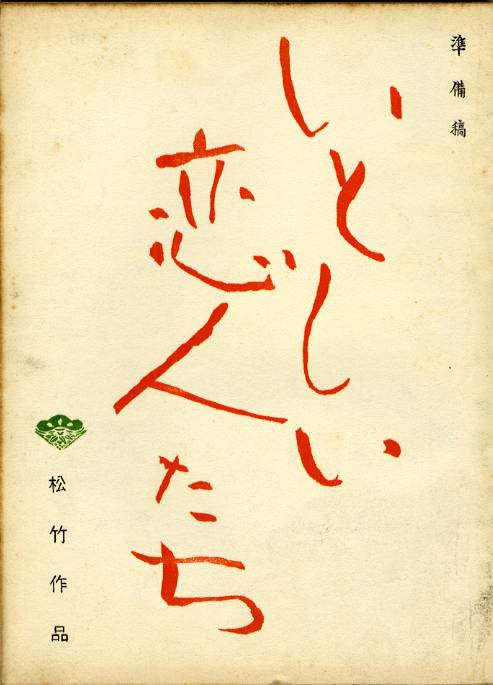 準備稿
いとしい
恋人たち
松竹作品